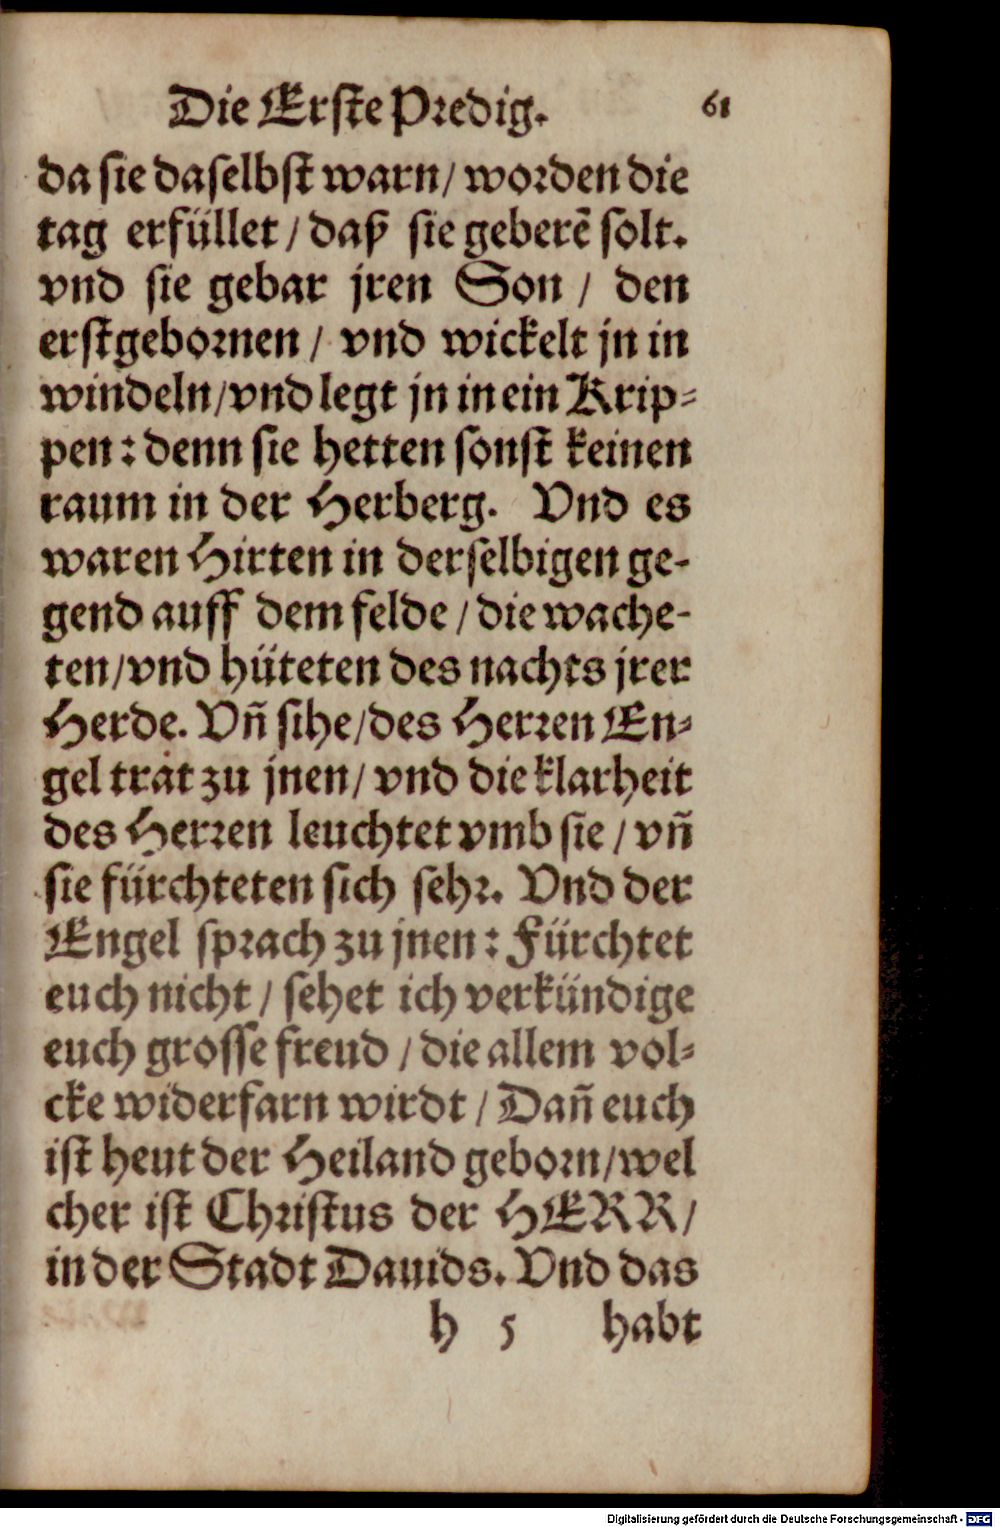 Die Erste Predig. 61
da sie daselbst warn/ worden die
tag erfüllet/ daß sie geberẽ solt.
vnd sie gebar jren Son/ den
erstgebornen/ vnd wickelt jn in
windeln/ vnd legt jn in ein Krip-
pen: denn sie hetten sonst keinen
raum in der Herberg. Vnd es
waren Hirten in derselbigen ge-
gend auff dem felde/ die wache-
ten/ vnd hüteten des nachts jrer
Herde. Vñ sihe/ des Herren En-
gel trat zu jnen/ vnd die klarheit
des Herren leuchtet vmb sie/ vñ
sie fürchteten sich sehr. Vnd der
Engel sprach zu jnen: Fürchtet
euch nicht/ sehet ich verkündige
euch grosse freud/ die allem vol-
cke widerfarn wirdt/ Dañ euch
ist heut der Heiland geborn/ wel
cher ist Christus der HERR/
in der Stadt Dauids. Vnd das
h 5 habt
Digitalisierung gefördert durch die Deutsche Forschungsgemeinschaft - DFG